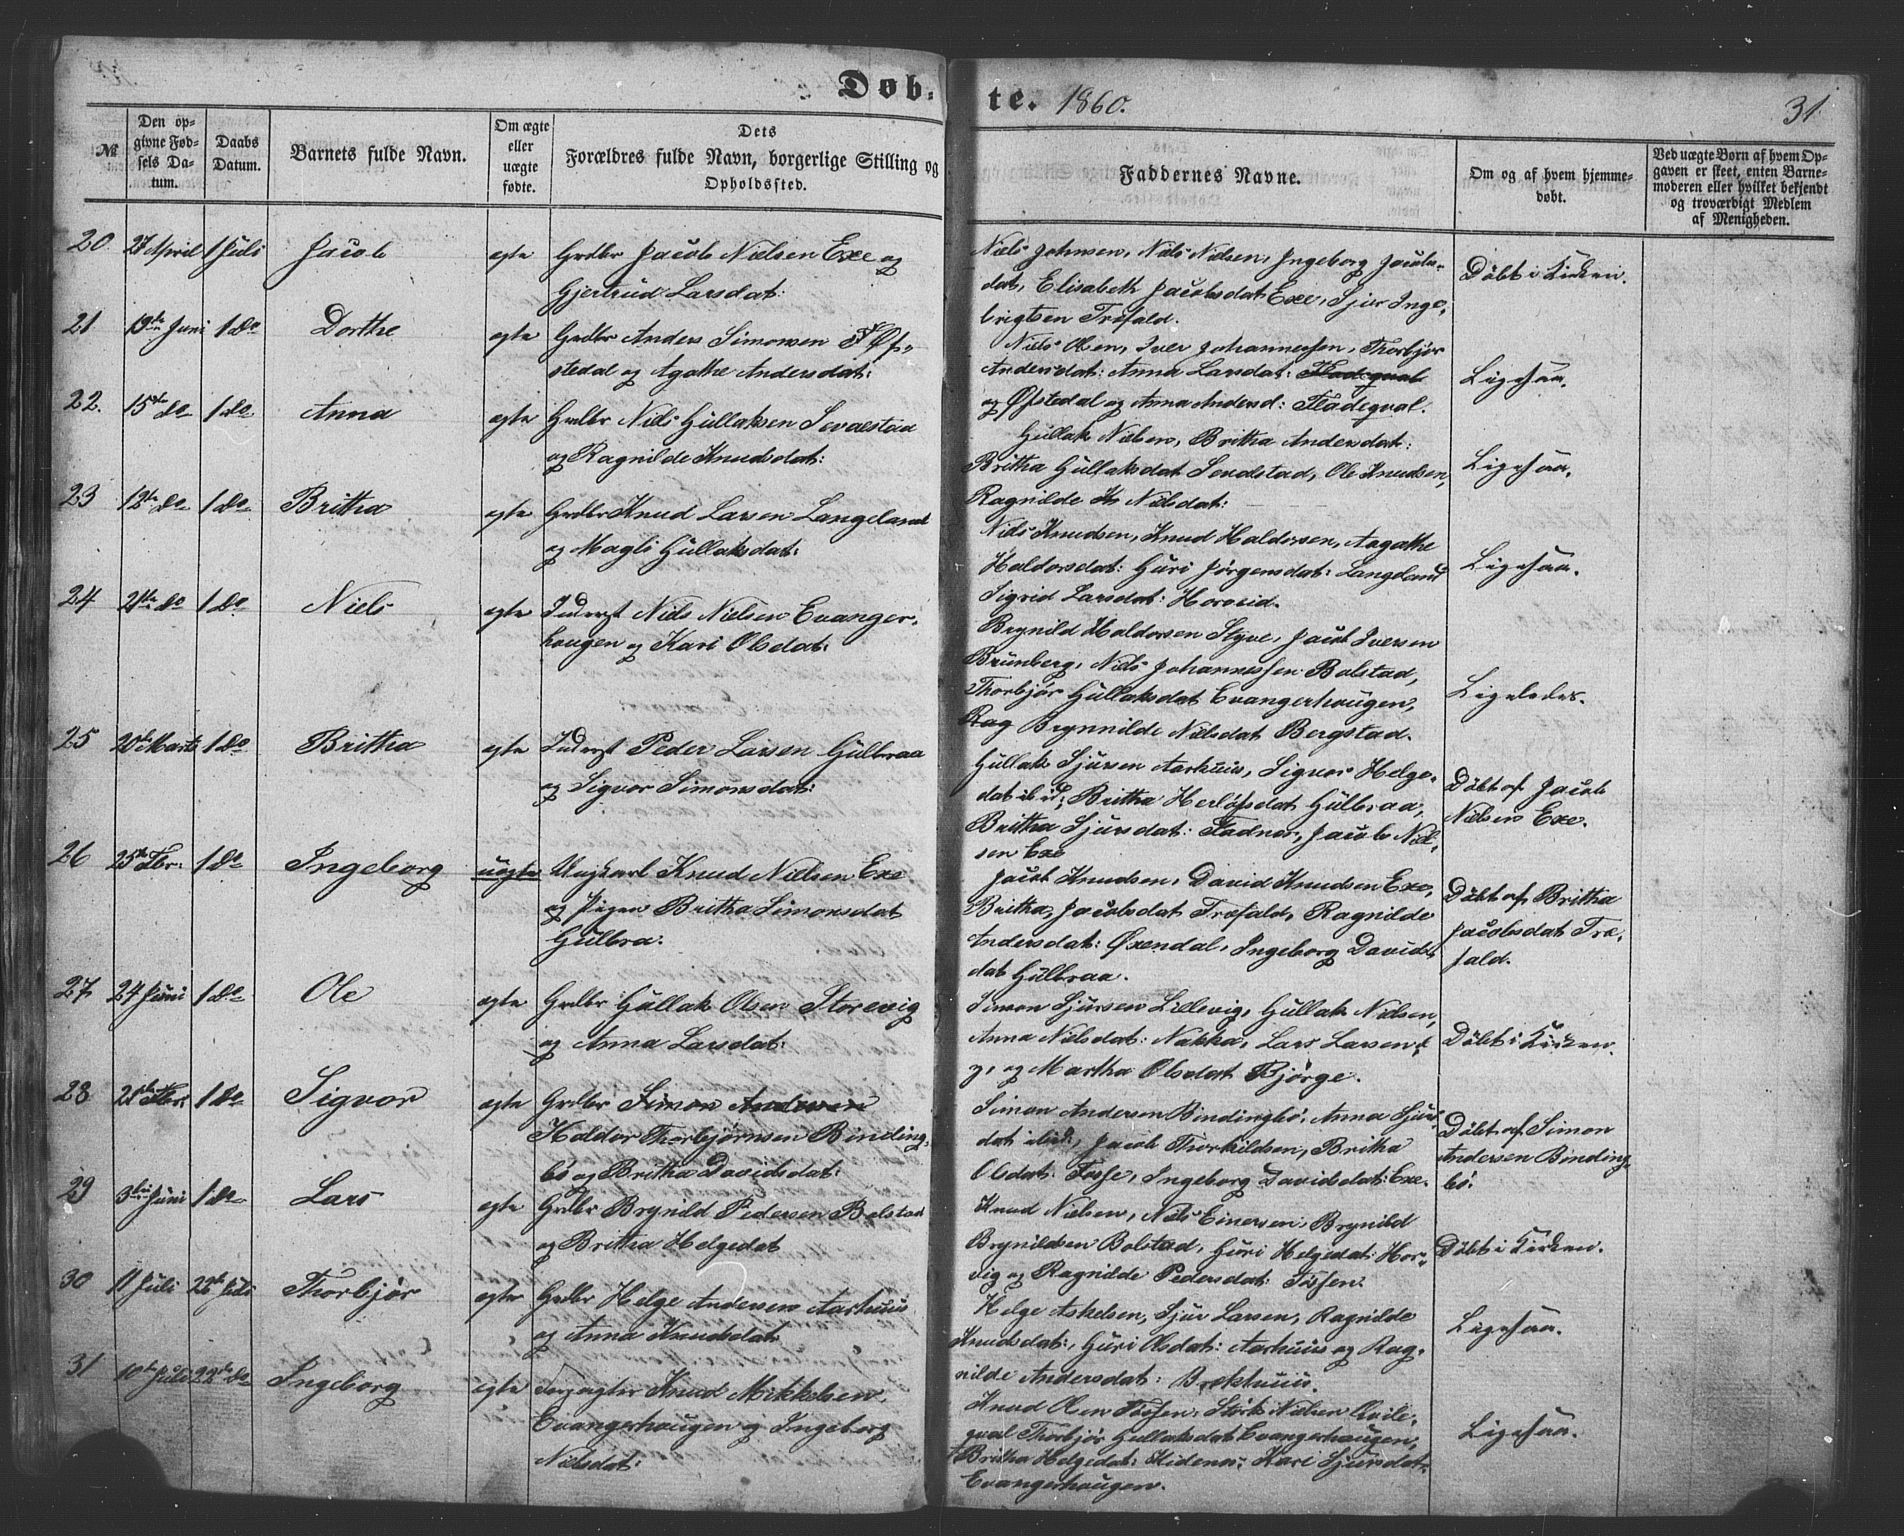 Døb-
te. 1860.
31
№
Den op-
givne Fød-
sels Da-
tum.
Daabs
Datum.
Barnets fulde Navn.
Om ægte
eller
uægte
fødte.
Dets
Forældres fulde Navn, borgerlige Stilling og
Opholdssted.
Faddernes Navne.
Om og af hvem hjemme-
døbt.
Ved uægte Børn af hvem Op-
gaven er skeet, enten Barne-
moderen eller hvilket bekjendt
og troværdigt Medlem
af Menigheden.
20 27 April 1 Juli Jacob egte Grdbr Jacob Nielsen Exe og
Gjertrud Larsdat:
Niels Johnsen, Niels Nielsen, Ingeborg Jacobs-
dat, Elisabeth Jacobsdat Exe, Sjur Inge-
brigtsen Træfald.
Döbt i Kirken.
21 13de Juni 1 do Dorthe egte Grdbr Anders Simonsen Øf-
stedal og Agathe Andersdat:
Niels Olsen, Iver Johannessen, Thorbjør
Andersdat: Anna Larsdat:
og Øfstedal og Anna Andersd: Fladeqval.
Ligesaa.
22. 15de do 1 do Anna egte Grdbr Niels Gullaksen
og Ragnilde Knudsdat:
Gullak Nielsen, Britha Andersdat:
Britha Gullaksdat Sendstad, Ole Knudsen,
Ragnilde Nielsdat:
Ligesaa.
23 12te do 1 do Britha egte Grdbr Knud Larsen Langeland
og Magli Gullaksdat:
Niels Knudsen, Knud Haldorsen, Aagathe
Haldorsdat: Guri Jørgensdat: Langeland
Sigrid Larsdat: Horvid.
Ligesaa.
24 21de do 1 do Niels egte Inderst Niels Nielsen Evanger-
haugen og Kari Olsdat:
Brynild Haldorsen Styve, Jacob Iversen
Brunberg, Niels Johannessen Bolstad,
Thorbjør Gullaksdat Evangerhaugen,
Rag Brynnilde Nielsdat Bergstad.
Ligeledes.
25 20de Marts 1 do Britha egte Inderst Peder Larsen Gulbraa
og Sigvor Simonsdat:
Gullak Sjursen Aarhuus, Sigvor Helge-
dat ibid, Britha Herlöfsdat Gulbraa,
Britha Sjursdat: Fadnes, Jacob Niel-
sen Exe
Döbt af Jacob
Nielsen Exe.
26 25de Fbr: 1 do Ingeborg uegte Ungkarl Knud Nielsen Exe
og Pigen Britha Simonsdat
Gulbra.
Jacob Knudsen, David Knudsen Exe,
Britha Jacobsdat Træfald, Ragnilde
Andersdat: Øxendal, Ingeborg Davids-
dat Gulbraa.
Döbt af Britha
Jacobsdat Træ-
fald.
27 24 Juni 1 do Ole egte Grdbr Gullak Olsen Storevig
og Anna Larsdat:
Simon Sjursen Lillevig, Gullak Nielsen,
Anna Nielsdat: Nakka, Lars Larsen
og Martha Olsdat Bjørge.
Döbt i Kirken.
28 21de Fbr: 1 do Sigvor egte Grdbr Simon Andersen
Haldor Thorbjørnsen Binding-
bö og Britha Davidsdat:
Simon Andersen Bindingbö, Anna Sjurs-
dat ibid, Jacob Thorkildsen, Britha
Olsdat: Fosse, Ingeborg Davidsdat: Exe.
Döbt af Simon
Andersen Binding-
bö.
29 3die Juni 1 do Lars egte Grdbr Brynild Pedersen Bolstad
og Britha Helgedat
Knud Nielsen, Niels Einersen, Brynild
Brynildsen Bolstad, Guri Helgedat: Hor-
vig og Ragnilde Pedersdat: Fosse.
Döbt i Kirken.
30 11 Juli 22de Juli Thorbjør egte Grdbr Helge Andersen Aarhuus
og Anna Knudsdat:
Helge Askelsen, Sjur Larsen, Ragnilde
Knudsdat:, Guri Olsdat: Aarhuus og Rag-
nilde Andersdat: Brækhuus.
Ligesaa.
31 10de Juli 22de do Ingeborg egte Knud Mikkelsen
Evangerhaugen og Ingeborg
Nielsdat:
Knud Olsen Fosse, Störk Nielsen Qvile-
qval Thorbjør Gullaksdat Evangerhaugen,
Britha Helgedat: Hidenæs, Kari Sjursdat:
Evangerhaugen.
Ligesaa.